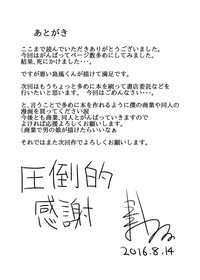 あとがき
ここまで読んでいただきありがとうございました。
今回はがんばってページ数多めにしてみました。
結果、死にかけました・・・。
ですが悪い島風くんが描けて満足です。
次回はもうちょっと多めに本を刷って書店委託などを
行いたいと思います。 今回はごめんなさい…
と、言うことで多めに本を作れるように僕の商業や同人の
漫画を買ってください涙
今後とも商業、同人とがんばっていきますので
よければ応援よろしくお願いします。
(商業で男の娘が描けたらいいなぁ
それではまた次回作でよろしくお願いします。
圧倒的
感謝
2016.8.14